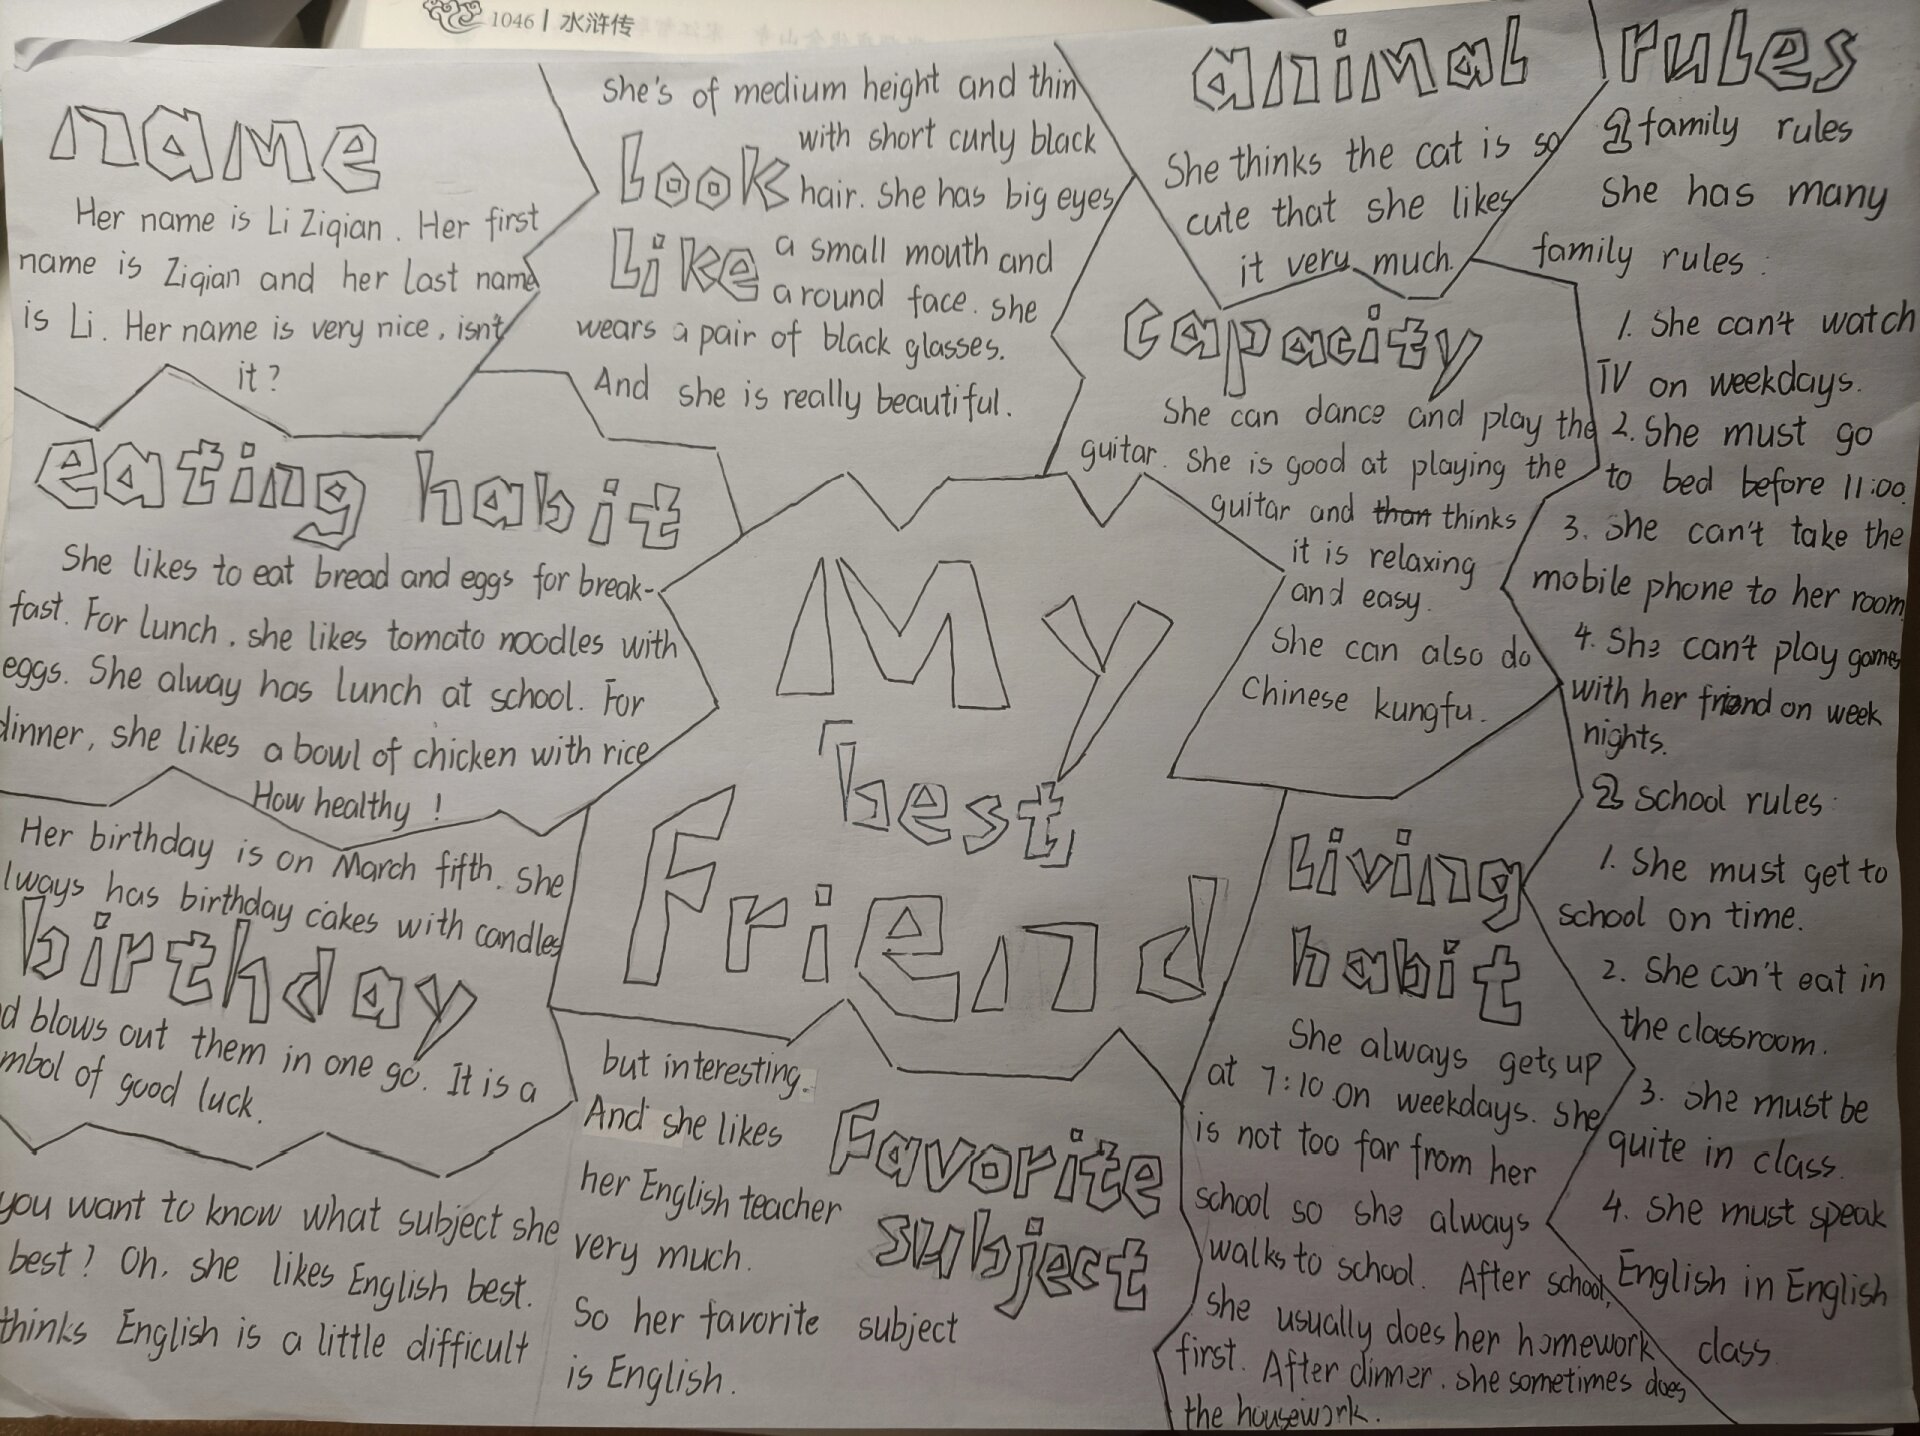 1046 | 水浒传
name
Her name is Li Ziqian. Her first
name is Ziqian and her last name
is Li. Her name is very nice, isn't
it?
She's of medium height and thin
look
with short curly black
hair. She has big eyes
like
a small mouth and
a round face. she
wears a pair of black glasses.
And she is really beautiful.
animal
She thinks the cat is so
cute that she likes
it very much.
capacity
She can dance and play the
guitar. She is good at playing the
guitar and than thinks
it is relaxing
and easy.
She can also do
Chinese kungfu.
rules
1 family rules
She has many
family rules:
1. She can't watch
TV on weekdays.
2. She must go
to bed before 11:00.
3. She can't take the
mobile phone to her room
4. She can't play games
with her friend on week
nights.
2 school rules:
1. She must get to
school on time.
2. She can't eat in
the classroom.
3. She must be
quite in class.
4. She must speak
English in English
class.
eating habit
She likes to eat bread and eggs for break-
fast. For lunch, she likes tomato noodles with
eggs. She alway has lunch at school. For
dinner, she likes a bowl of chicken with rice
How healthy!
My
「best」
Friend
Her birthday is on March fifth. She
lways has birthday cakes with candles
birthday
d blows out them in one go. It is a
mbol of good luck.
living
habit
She always gets up
at 7:10 on weekdays. She
is not too far from her
school so she always
walks to school. After school,
she usually does her homework
first. After dinner, she sometimes does
the housework.
you want to know what subject she
best? Oh, she likes English best.
thinks English is a little difficult
but interesting.
And she likes
her English teacher
very much.
So her favorite subject
is English.
Favorite
subject